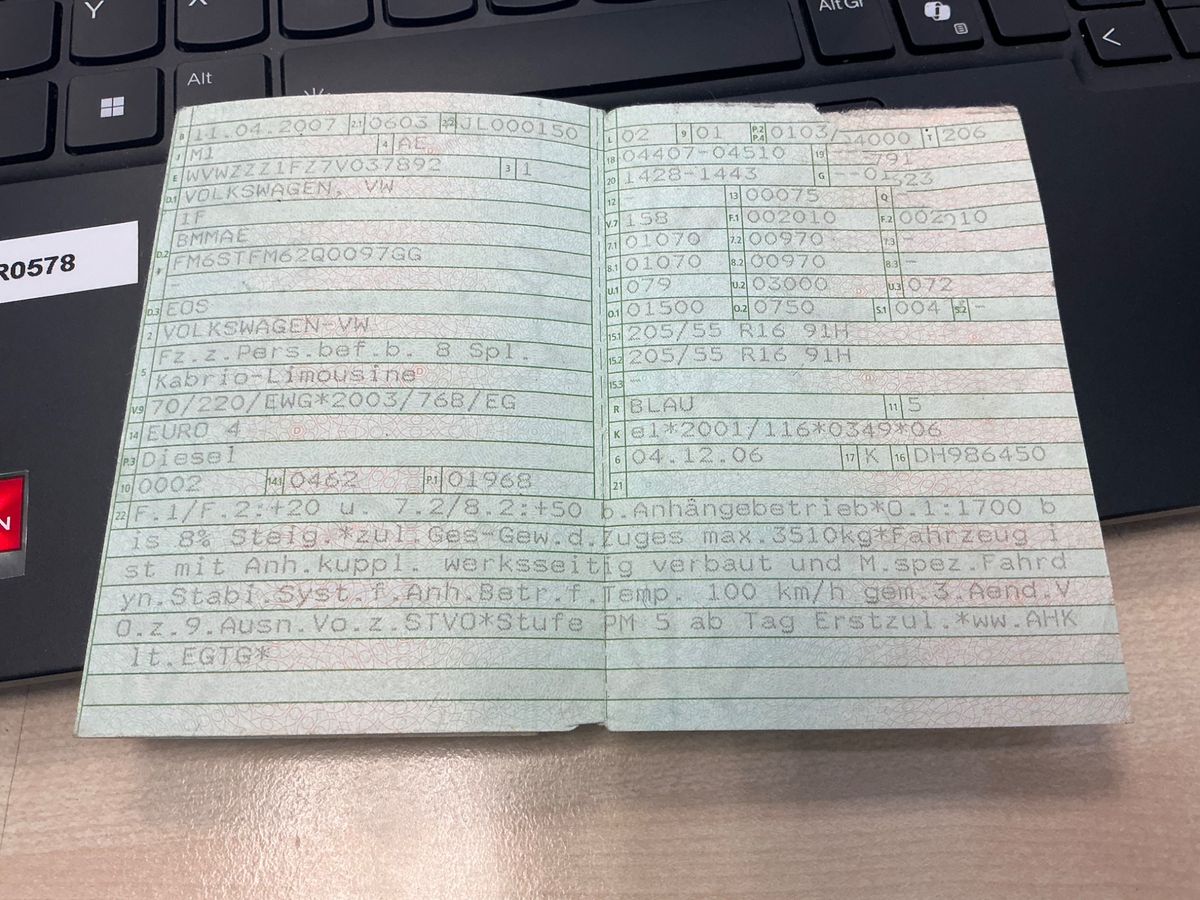 Y X AltGr <
Alt
R0578
N
B 11.04.2007 2.1 0603 2.2 JL000150
J M1 4 AE
E WVWZZZ1FZ7V037892 3 1
D.1 VOLKSWAGEN, VW
1F
D.2 BMMAE
FM6STFM62Q0097GG
-
D.3 EOS
2 VOLKSWAGEN-VW
5 Fz.z.Pers.bef.b. 8 Spl.
Kabrio-Limousine
V.9 70/220/EWG*2003/768/EG
14 EURO 4
P.3 Diesel
10 0002 14.1 0462 P.1 01968
L 02 9 01 P.2 P.4 0103/ 4000 T 206
18 04407-04510 19 791
20 1428-1443 G --01523
12 - 13 00075 Q
V.7 158 F.1 002010 F.2 002010
7.1 01070 7.2 00970 7.3 -
8.1 01070 8.2 00970 8.3 -
U.1 079 U.2 03000 U.3 072
O.1 01500 O.2 0750 S.1 004 S.2 -
15.1 205/55 R16 91H
15.2 205/55 R16 91H
15.3 --
R BLAU 11 5
K e1*2001/116*0349*06
6 04.12.06 17 K 16 DH986450
21
22 F.1/F.2:+20 u. 7.2/8.2:+50 b.Anhängebetrieb*O.1:1700 b
is 8% Steig.*zul.Ges-Gew.d.Zuges max.3510kg*Fahrzeug i
st mit Anh.kuppl. werksseitig verbaut und M.spez.Fahrd
yn.Stabi.Syst.f.Anh.Betr.f.Temp. 100 km/h gem.3.Aend.V
O.z.9.Ausn.Vo.z.STVO*Stufe PM 5 ab Tag Erstzul.*ww.AHK
lt.EGTG*